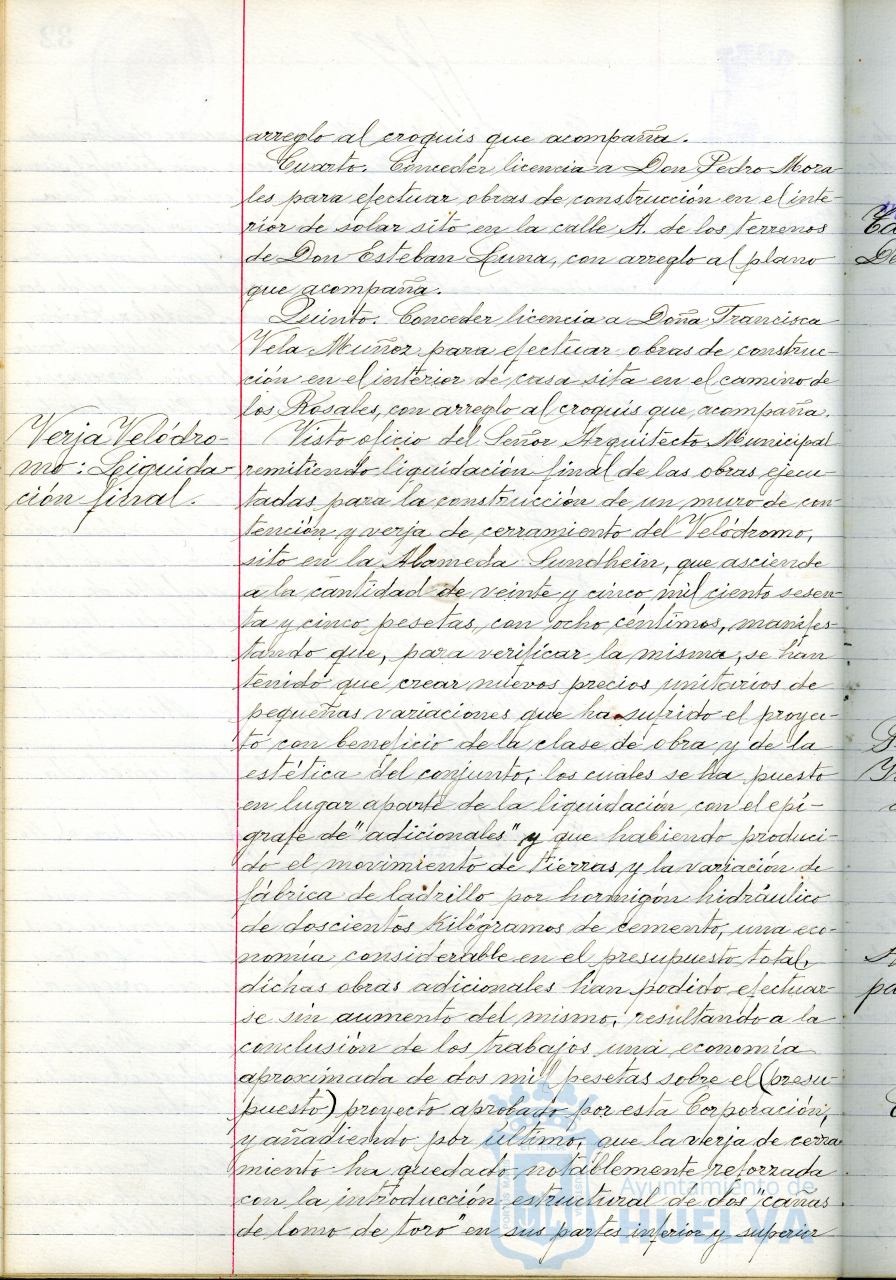 arreglo al croquis que acompaña.
Cuarto. Conceder licencia a Don Pedro Mora-
les para efectuar obras de construcción en el inte-
rior de solar sito en la calle A. de los terrenos
de Don Esteban Luna, con arreglo al plano
que acompaña.
Quinto. Conceder licencia a Doña Francisca
Vela Muñoz para efectuar obras de construc-
ción en el interior de casa sita en el camino de
los Rosales, con arreglo al croquis que acompaña.
Verja Velódro-
mo: Liquida-
ción final.
Visto oficio del Señor Arquitecto Municipal
remitiendo liquidación final de las obras ejecu-
tadas para la construcción de un muro de con-
tención y verja de cerramiento del Velódromo,
sito en la Alameda Sundhein, que asciende
a la cantidad de veinte y cinco mil ciento sesen-
ta y cinco pesetas, con ocho céntimos, manifes-
tando que, para verificar la misma, se han
tenido que crear nuevos precios unitarios de
pequeñas variaciones que ha sufrido el proyec-
to con beneficio de la clase de obra y de la
estética del conjunto, los cuales se ha puesto
en lugar aparte de la liquidación con el epí-
grafe de "adicionales" y que habiendo produci-
do el movimiento de tierras y la variación de
fábrica de ladrillo por hormigón hidráulico
de doscientos kilógramos de cemento, una eco-
nomía considerable en el presupuesto total,
dichas obras adicionales han podido efectuar-
se sin aumento del mismo, resultando a la
conclusión de los trabajos una economía
aproximada de dos mil pesetas sobre el (presu-
puesto) proyecto aprobado por esta Corporación,
y añadiendo por último, que la verja de cerra-
miento ha quedado notablemente reforzada
con la introducción estructural de dos "cañas
de lomo de toro" en sus partes inferior y superior
Ayuntamiento de
HUELVA